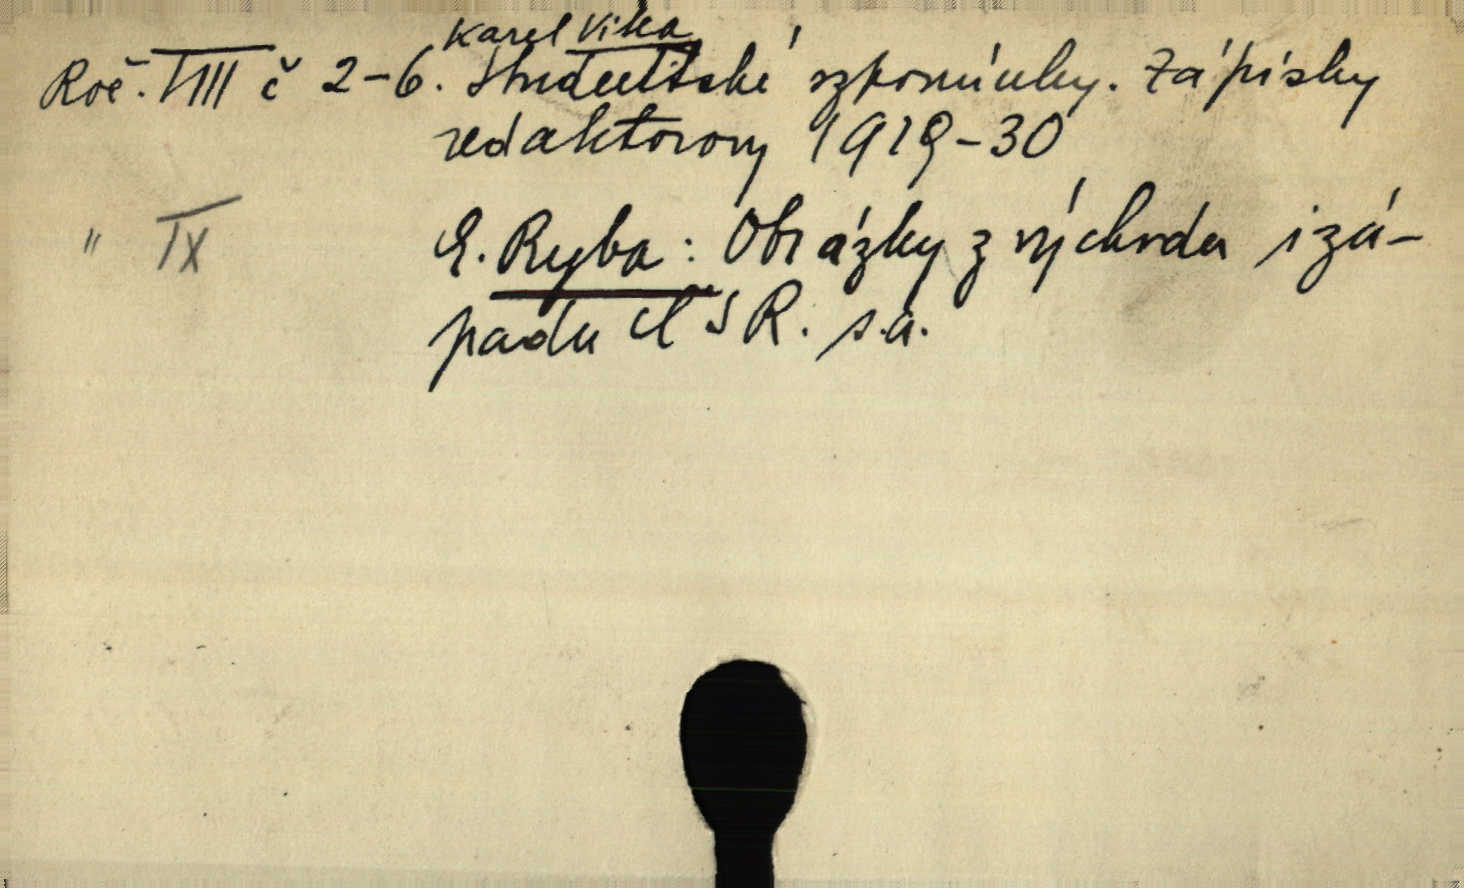 Karel Vika
Roč. VIII č 2-6. Studentské vzpomínky. Zápisky
redaktorovy 1929-30
" IX E. Ryba: Obrázky z východu i zá-
padu ČSR. s.a.